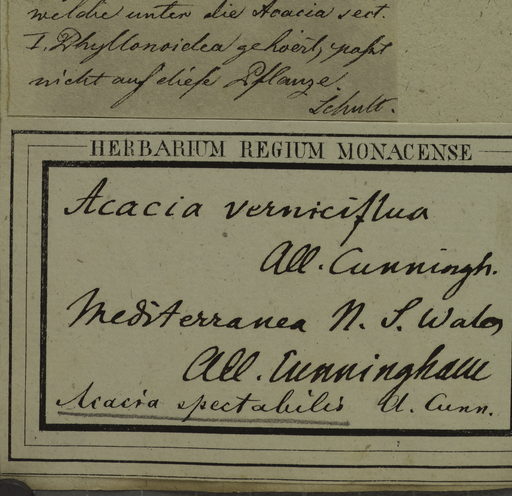 welche unter die Acacia sect.
I. Phyllonoidea gehoert, passt
nicht auf diese Pflanze.
Schult.
HERBARIUM REGIUM MONACENSE
Acacia verniciflua
All. Cunningh.
Mediterranea N. S. Wales
All. Cunningham
Acacia spectabilis A. Cunn.